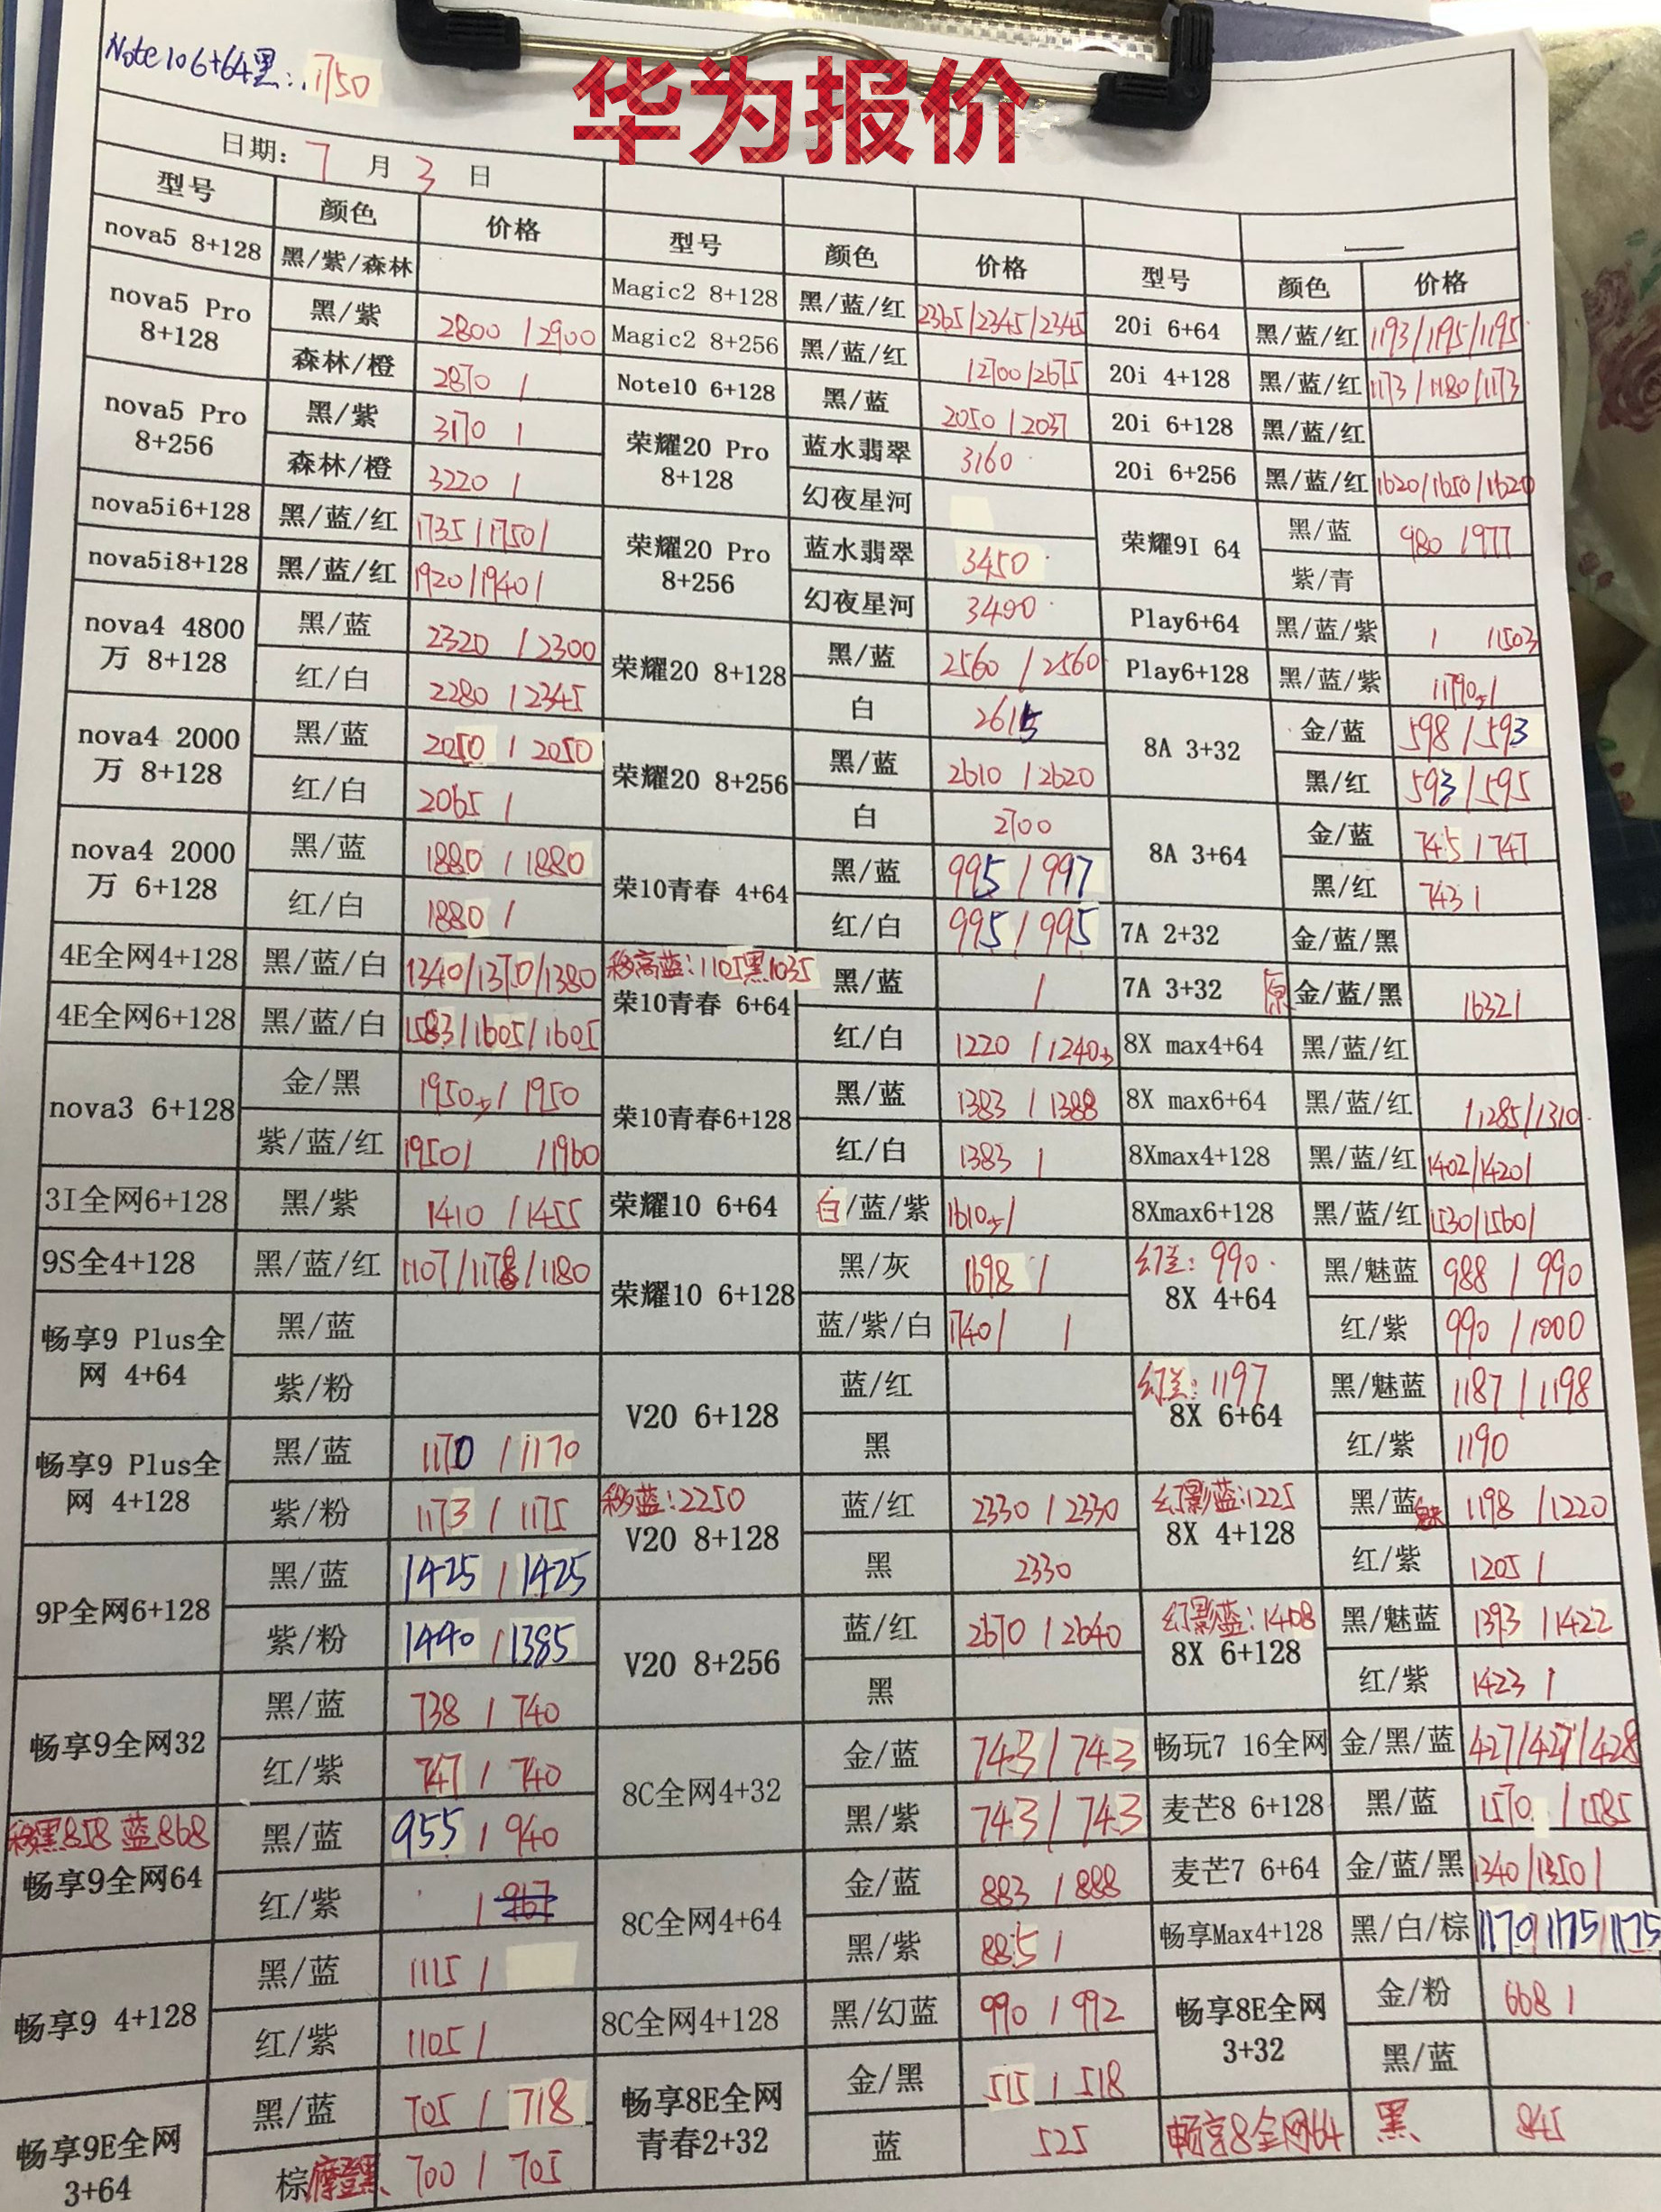 华为报价
Note10 6+64黑: 1750
日期: 7 月 3 日
型号 颜色 价格
nova5 8+128 黑/紫/森林
nova5 Pro 8+128 黑/紫 2800 / 2900
森林/橙 2870 /
nova5 Pro 8+256 黑/紫 3170 /
森林/橙 3220 /
nova5i6+128 黑/蓝/红 1735/1750/
nova5i8+128 黑/蓝/红 1920/1940/
nova4 4800万 8+128 黑/蓝 2320 / 2300
红/白 2280 / 2345
nova4 2000万 8+128 黑/蓝 2050 / 2050
红/白 2065 /
nova4 2000万 6+128 黑/蓝 1880 / 1880
红/白 1880 /
4E全网4+128 黑/蓝/白 1340/1370/1380
4E全网6+128 黑/蓝/白 1583/1605/1605
nova3 6+128 金/黑 1950 / 1950
紫/蓝/红 1950/ /1960
3I全网6+128 黑/紫 1410 / 1455
9S全4+128 黑/蓝/红 1107/1178/1180
畅享9 Plus全网 4+64 黑/蓝
紫/粉
畅享9 Plus全网 4+128 黑/蓝 1170 / 1170
紫/粉 1173 / 1175
9P全网6+128 黑/蓝 1425 / 1425
紫/粉 1440 / 1385
畅享9全网32 黑/蓝 738 / 740
红/紫 747 / 740
移黑858 蓝868
畅享9全网64 黑/蓝 955 / 940
红/紫 / 967
畅享9 4+128 黑/蓝 1115 /
红/紫 1105 /
畅享9E全网 3+64 黑/蓝 705 / 718
棕摩登黑 700 / 705
型号 颜色 价格
Magic2 8+128 黑/蓝/红 2365/2345/2345
Magic2 8+256 黑/蓝/红 /2700/2675
Note10 6+128 黑/蓝 2050 / 2037
荣耀20 Pro 8+128 蓝水翡翠 3160
幻夜星河
荣耀20 Pro 8+256 蓝水翡翠 3450
幻夜星河 3400
荣耀20 8+128 黑/蓝 2560 / 2560
白 2615
荣耀20 8+256 黑/蓝 2610 / 2620
白 2700
荣10青春 4+64 黑/蓝 995 / 997
红/白 995 / 995
移高蓝:1105黑1035
荣10青春 6+64 黑/蓝 /
红/白 1220 / 1240
荣10青春6+128 黑/蓝 1383 / 1388
红/白 1383 /
荣耀10 6+64 白/蓝/紫 1610 /
荣耀10 6+128 黑/灰 1698 /
蓝/紫/白 1740/ /
V20 6+128 蓝/红
黑
移蓝:2250
V20 8+128 蓝/红 2330 / 2330
黑 2330
V20 8+256 蓝/红 2670 / 2640
黑
8C全网4+32 金/蓝 743 / 743
黑/紫 743 / 743
8C全网4+64 金/蓝 883 / 888
黑/紫 885 /
8C全网4+128 黑/幻蓝 990 / 992
畅享8E全网青春2+32 金/黑 515 / 518
蓝 525
型号 颜色 价格
20i 6+64 黑/蓝/红 1193/1195/1195
20i 4+128 黑/蓝/红 1173/1180/1173
20i 6+128 黑/蓝/红
20i 6+256 黑/蓝/红 1620/1650/1620
荣耀9I 64 黑/蓝 980 / 977
紫/青
Play6+64 黑/蓝/紫 / /1503
Play6+128 黑/蓝/紫 /1790 /
8A 3+32 金/蓝 598 / 593
黑/红 593 / 595
8A 3+64 金/蓝 745 / 747
黑/红 743 /
7A 2+32 金/蓝/黑
7A 3+32 原 金/蓝/黑 /632/
8X max4+64 黑/蓝/红
8X max6+64 黑/蓝/红 /1285/1310
8Xmax4+128 黑/蓝/红 1402/1420/
8Xmax6+128 黑/蓝/红 1530/1560/
幻兰: 990
8X 4+64 黑/魅蓝 988 / 990
红/紫 990 / 1000
幻兰: 1197
8X 6+64 黑/魅蓝 1187 / 1198
红/紫 1190
幻影蓝:1225
8X 4+128 黑/蓝魅 1198 / 1220
红/紫 1205 /
幻影蓝:1408
8X 6+128 黑/魅蓝 1393 / 1422
红/紫 1423 /
畅玩7 16全网 金/黑/蓝 427/427/428
麦芒8 6+128 黑/蓝 1570 / 1585
麦芒7 6+64 金/蓝/黑 1340/1350/
畅享Max4+128 黑/白/棕 1170/1175/1175
畅享8E全网 3+32 金/粉 668 /
黑/蓝
畅享8全网64 黑 845